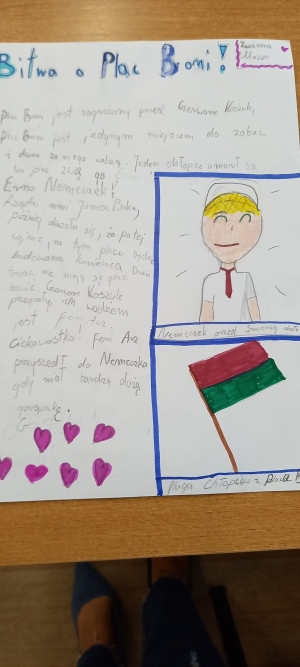 Bitwa o Plac Broni!
Zuzanna
Mazur
Plac Broni jest zagrożony przez Czerwone Koszule,
Plac Broni jest jedynym miejscem do zabaw
i dawo za niego walczą. Jeden chłopiec umarł za
ten plac zwą go
Erno Nemeczek!
Rządzi nimi Janosz Boka,
później okazało się, że po tej
wojnie, na tym placu będzie
budowana kamienica. Dzieci
nie mają się gdzie
bawić. Czerwone Koszule
przegrały, ich wodzem
jest
Ciekawostka! Feri Acz
przyszedł do Nemeczka
gdy miał bardzo dużą
gorączkę.
Nemeczek przed śmiercią
Flaga Chłopców z Placu B